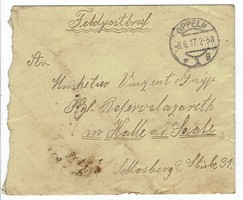 Feldpostbrief
OPPELN
-8.6.17. 2-3N
* 1 g
An
Musketier Vinzent
Kgl. Reservelazareth
in Halle a. d. Saale
Schlosberg Stube 31.